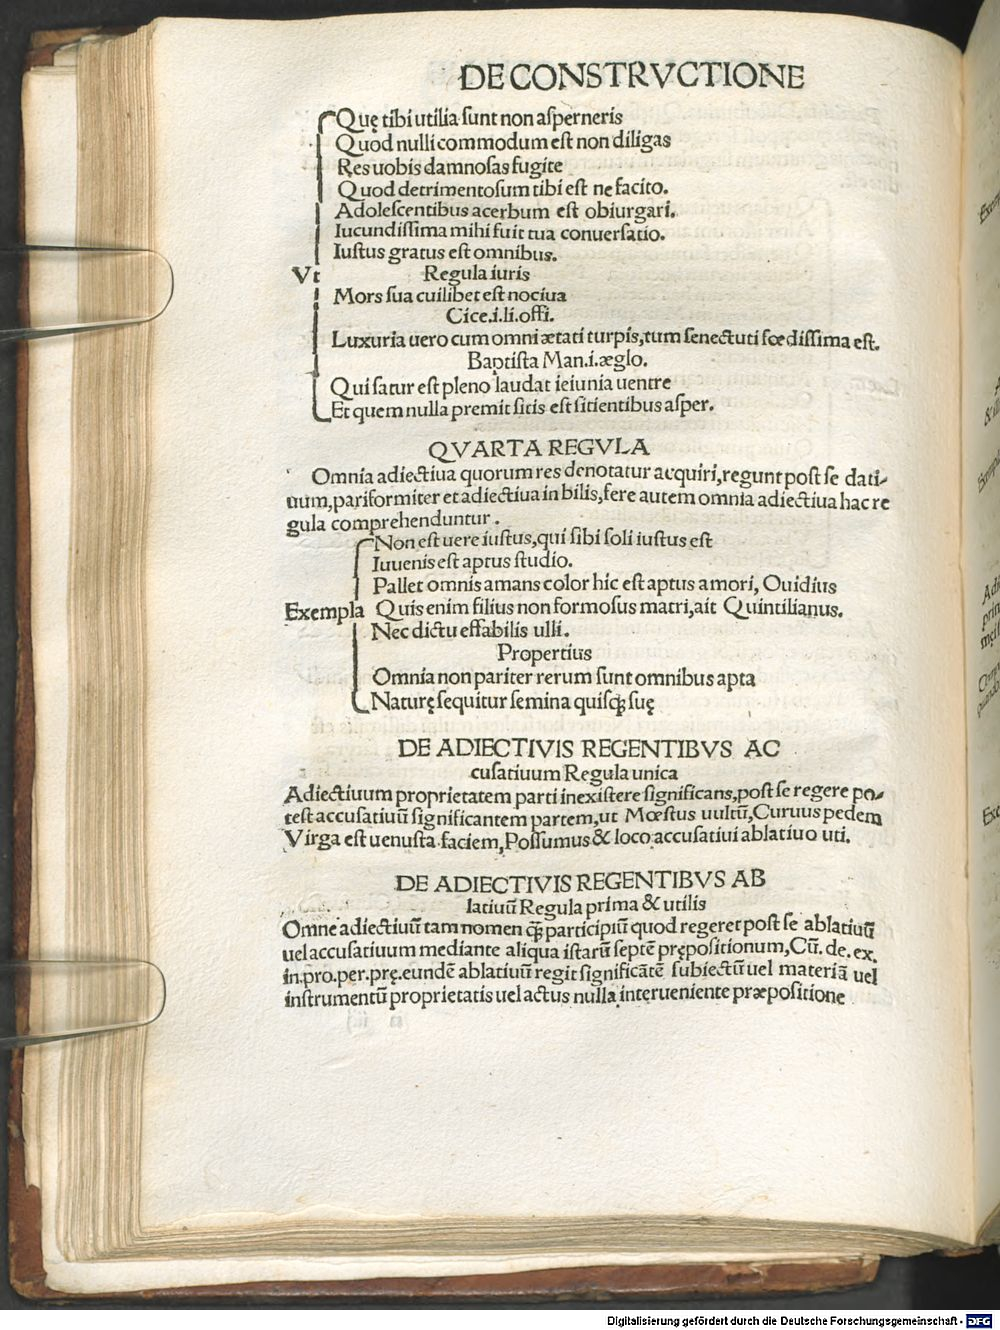 DE CONSTRVCTIONE
Quę tibi utilia sunt non asperneris
Quod nulli commodum est non diligas
Res uobis damnosas fugite
Quod detrimentosum tibi est ne facito.
Adolescentibus acerbum est obiurgari.
Iucundissima mihi fuit tua conuersatio.
Iustus gratus est omnibus.
Vt Regula iuris
Mors sua cuilibet est nociua
Cice.i.li.offi.
Luxuria uero cum omni ætati turpis,tum senectuti fœdissima est.
Baptista Man.i.æglo.
Qui satur est pleno laudat ieiunia uentre
Et quem nulla premit sitis est sitientibus asper.
QVARTA REGVLA
Omnia adiectiua quorum res denotatur acquiri,regunt post se dati-
uum,pariformiter et adiectiua in bilis,fere autem omnia adiectiua hac re
gula comprehenduntur.
Non est uere iustus,qui sibi soli iustus est
Iuuenis est aptus studio.
Pallet omnis amans color hic est aptus amori, Ouidius
Exempla Quis enim filius non formosus matri,ait Quintilianus.
Nec dictu effabilis ulli.
Propertius
Omnia non pariter rerum sunt omnibus apta
Naturę sequitur semina quisqꝫ suę
DE ADIECTIVIS REGENTIBVS AC
cusatiuum Regula unica
Adiectiuum proprietatem parti inexistere significans,post se regere po-
test accusatiuū significantem partem,ut Mœstus uultū,Curuus pedem
Virga est uenusta faciem,Possumus & loco accusatiui ablatiuo uti.
DE ADIECTIVIS REGENTIBVS AB
latiuū Regula prima & utilis
Omne adiectiuū tam nomen qꝫ participiū quod regeret post se ablatiuū
uel accusatiuum mediante aliqua istarū septē prępositionum,Cū.de.ex.
in.pro.per.prę.eundē ablatiuū regit significātē subiectū uel materiā uel
instrumentū proprietatis uel actus nulla interueniente præpositione
Digitalisierung gefördert durch die Deutsche Forschungsgemeinschaft - DFG